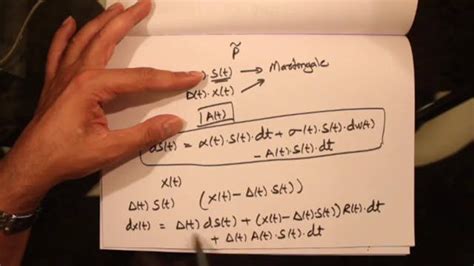 P̃
S(t) → Martingale
D(t). X(t)
A(t)
dS(t) = α(t).S(t).dt + σ(t).S(t).dW(t)
- A(t).S(t).dt
X(t)
Δ(t) S(t) (X(t) - Δ(t) S(t))
dX(t) = Δ(t) dS(t) + (X(t) - Δ(t) S(t)) R(t).dt
+ Δ(t) A(t).S(t).dt